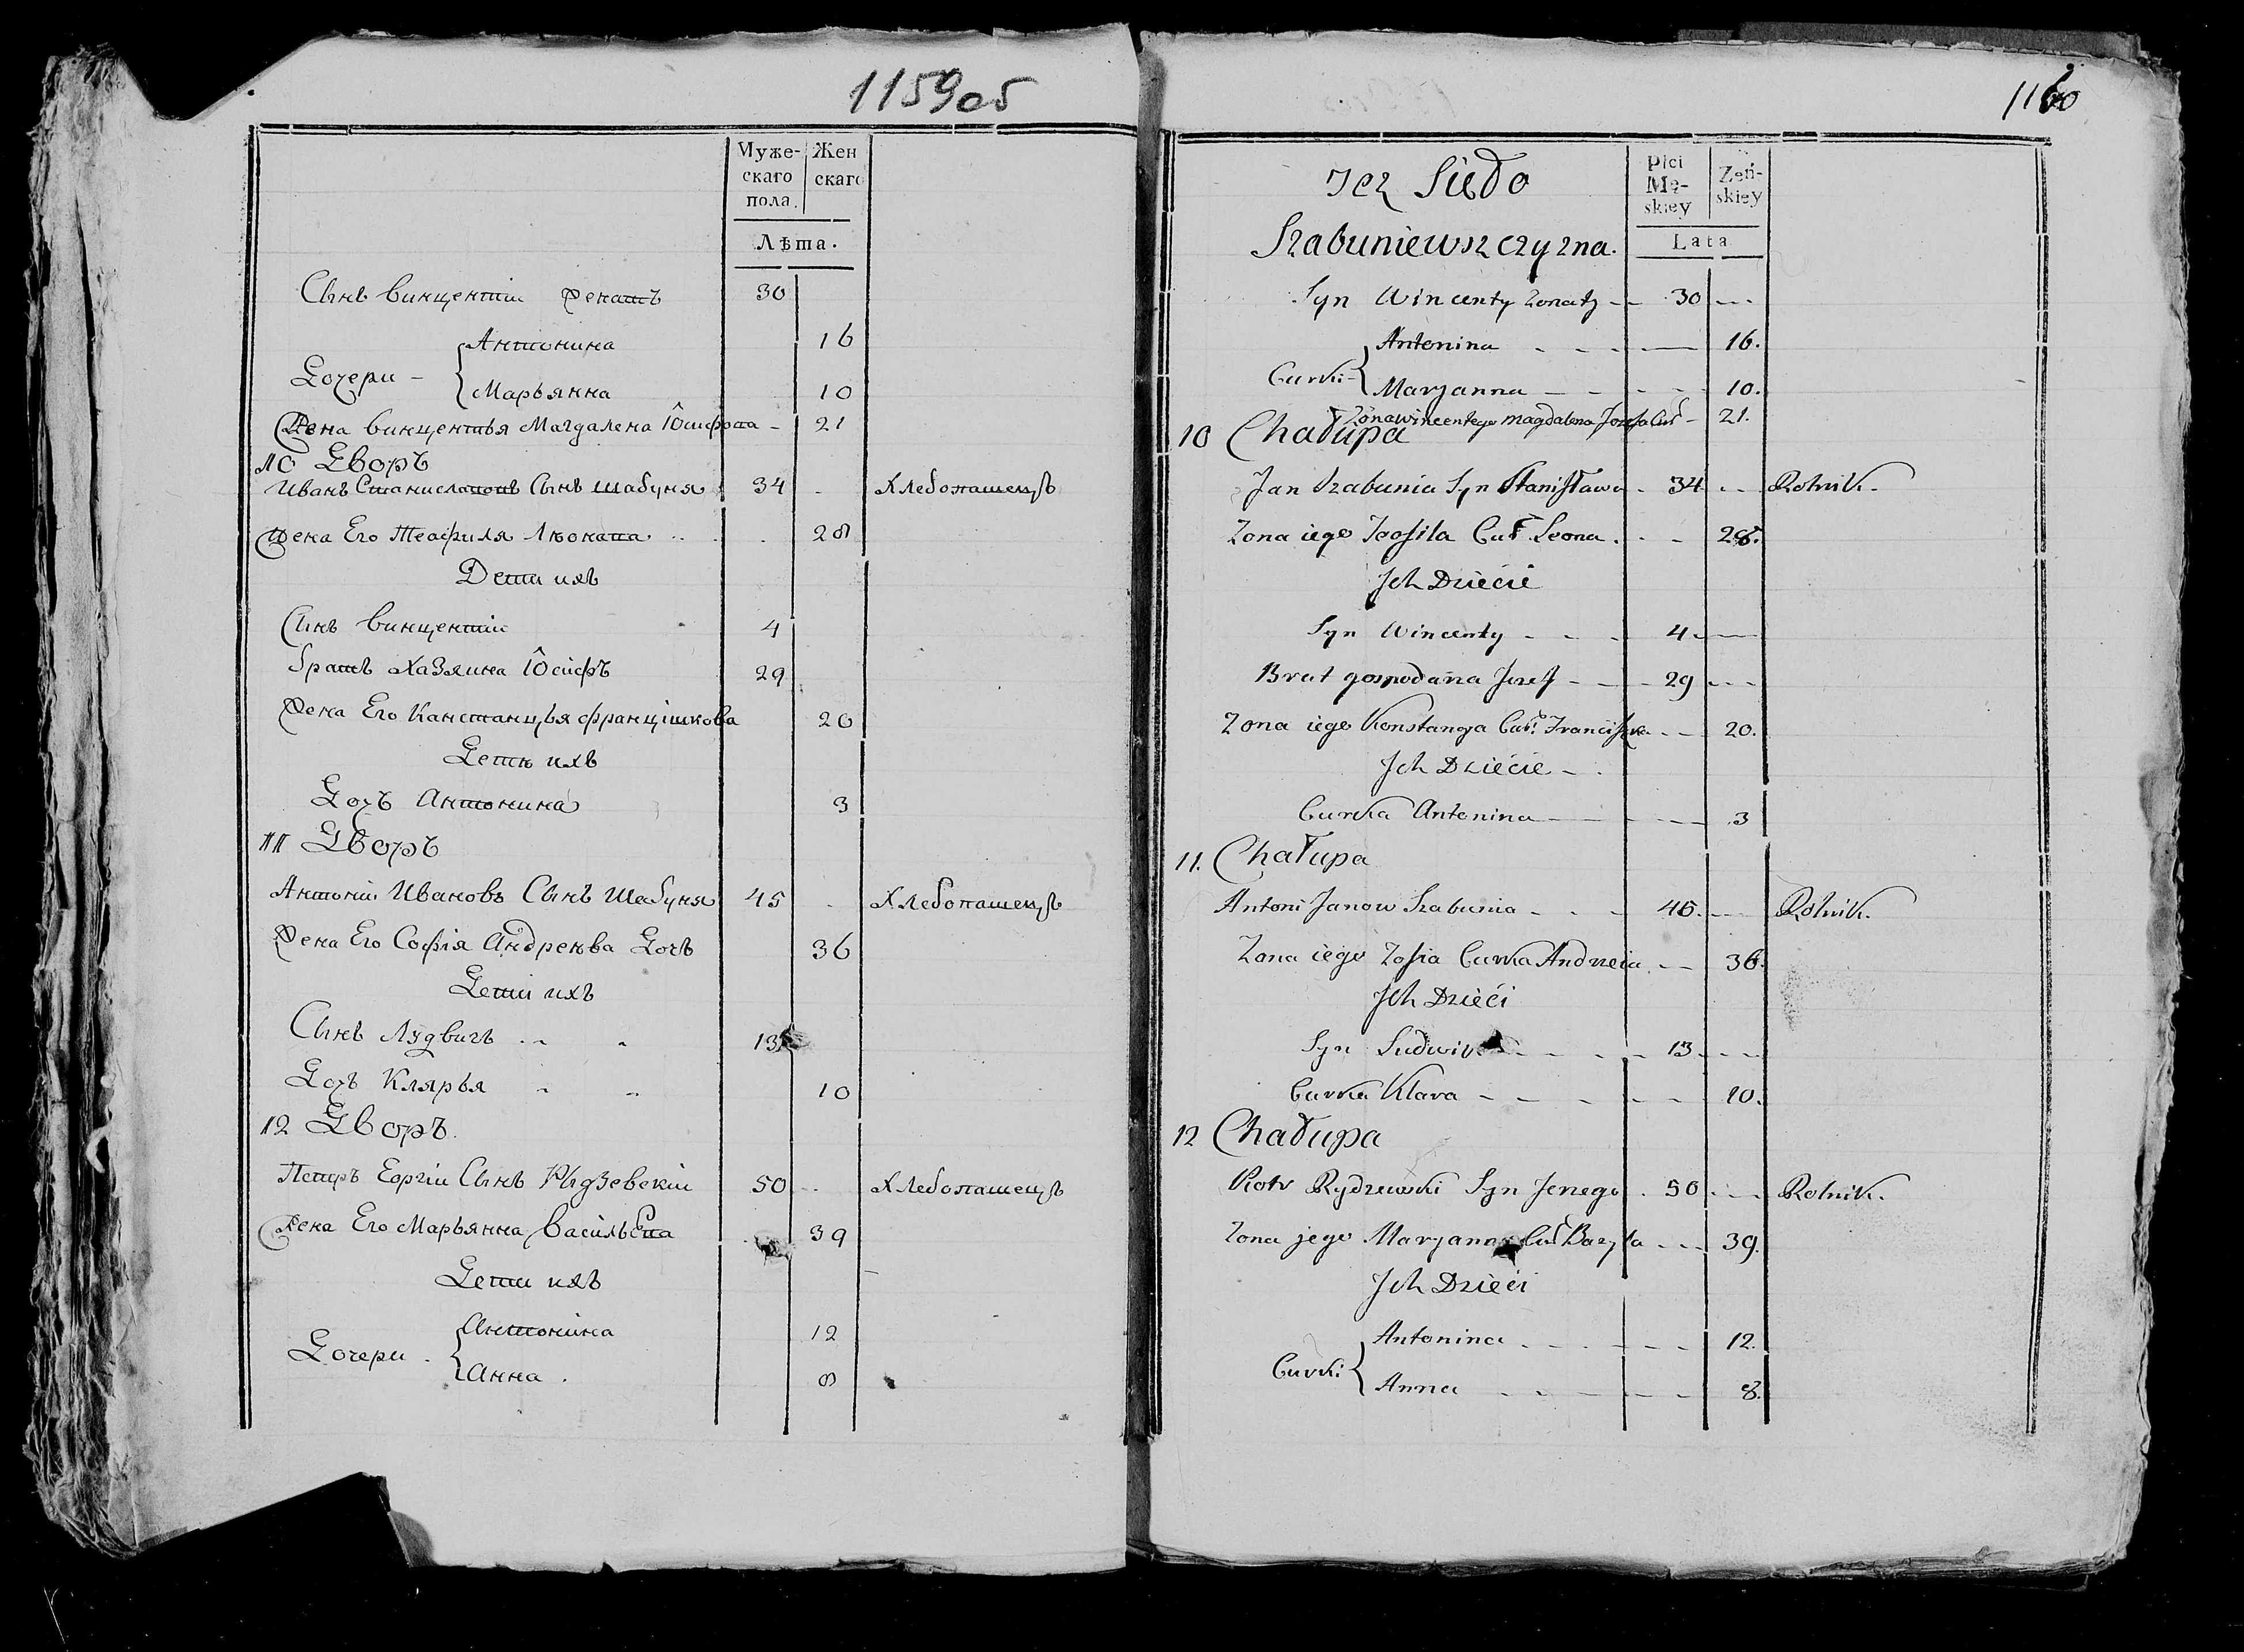 1159об
Муже-
скаго
пола.
Жен
скаго
Лѣта.
Сынъ Винцентіи Женатъ 30
Антонина 16
Дочери -
Марьянна 10
Жена Винцентья Магдалена Іосифова - 21
10 Дворъ
Иванъ Станиславовъ Сынъ Шабуня 34 Хлебопашецъ
Жена Его Теофиля Люкаша 28
Дети ихъ
Сынъ Винцентіи 4
Братъ Хазяина Іосифъ 29
Жена Его Канстанцья францішкова 20
Дети ихъ
Дочъ Антонина 3
11 Дворъ
Антоніи Ивановъ Сынъ Шабуня 45 Хлебопашецъ
Жена Его Софія Андреюва Дочъ 36
Дети ихъ
Сынъ Лудвигъ 13
Дочъ Клярья 10
12 Дворъ.
Петръ Еоргіи Сынъ Рыдзевскіи 50 Хлебопашецъ
Жена Его Марьянна Васильева 39
Дети ихъ
Антоніна 12
Дочери
Анна 8
1160
Płci
Mę-
skiey
Żeń-
skiey
Szabuniewszczyzna.
Lata
Syn Wincenty Zonaty 30
Antonina 16.
Curki
Maryanna 10.
Zona Wincentego Magdalena Jozefa Cur 21.
10 Chałupa
Jan Szabunia Syn Stanisława 34 Rolnik.
Zona iego Teofila Cur Leona 28.
Ich Dziécie
Syn Wincenty 4
Brat gospodarza Jozef 29
Zona iego Konstancya Cur. Franciszka 20.
Ich Dziécie
Curka Antonina 3
11. Chałupa
Antoni Janow Szabunia 45. Rolnik.
Zona iego Zofia Curka Andrzeia 36.
Ich Dziéci
Syn Ludwik 13
Curka Klara 10.
12 Chałupa
Piotr Rydzewski Syn Jerzego 50 Rolnik.
Zona jego Maryanna Cur Bazyla 39.
Ich Dziéci
Antonina 12.
Curki
Anna 8.